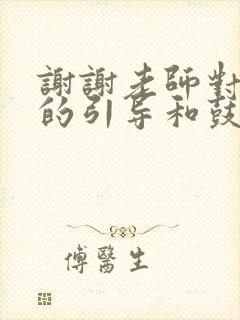 謝謝老師對
的引导和鼓
傅醫生